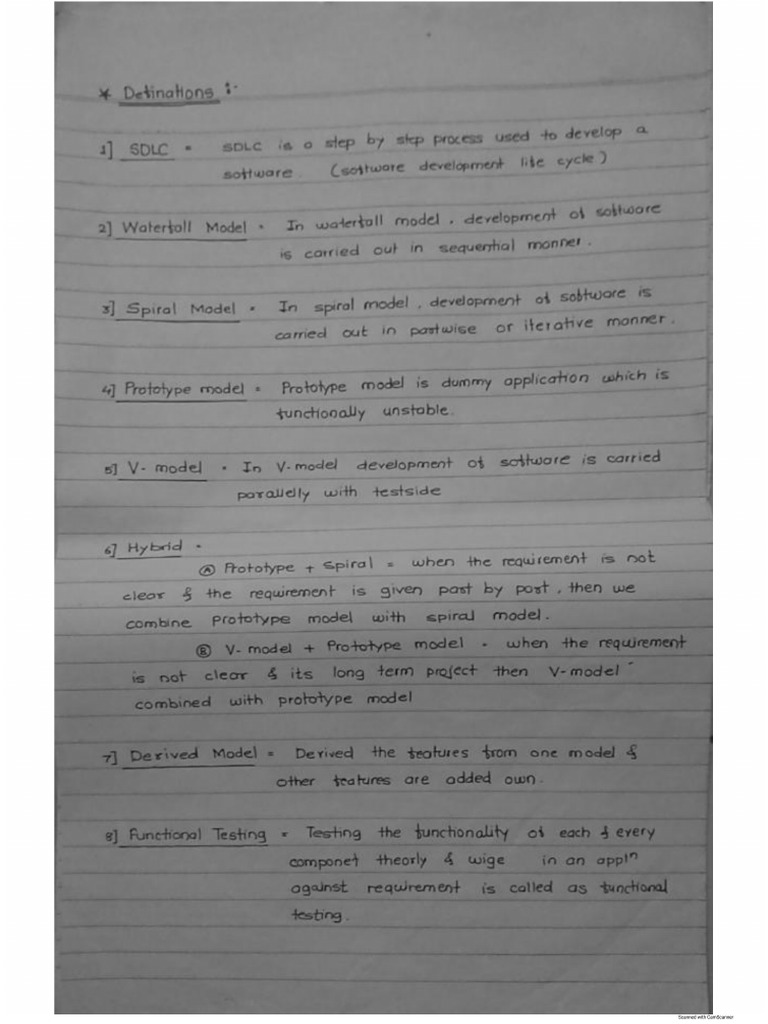 * Definations :-
1] SDLC = SDLC is a step by step process used to develop a
software. (software development life cycle)
2] Waterfall Model = In waterfall model, development of software
is carried out in sequential manner.
3] Spiral Model = In spiral model, development of software is
carried out in partwise or iterative manner.
4] Prototype model = Prototype model is dummy application which is
functionally unstable.
5] V-model = In V-model development of software is carried
parallelly with testside
6] Hybrid =
(A) Prototype + Spiral = when the requirement is not
clear & the requirement is given part by part, then we
combine prototype model with spiral model.
(B) V-model + Prototype model = when the requirement
is not clear & its long term project then V-model
combined with prototype model
7] Derived Model = Derived the features from one model &
other features are added own.
8] Functional Testing = Testing the functionality of each & every
componet theorly & wige in an appln
against requirement is called as functional
testing.
Scanned with CamScanner